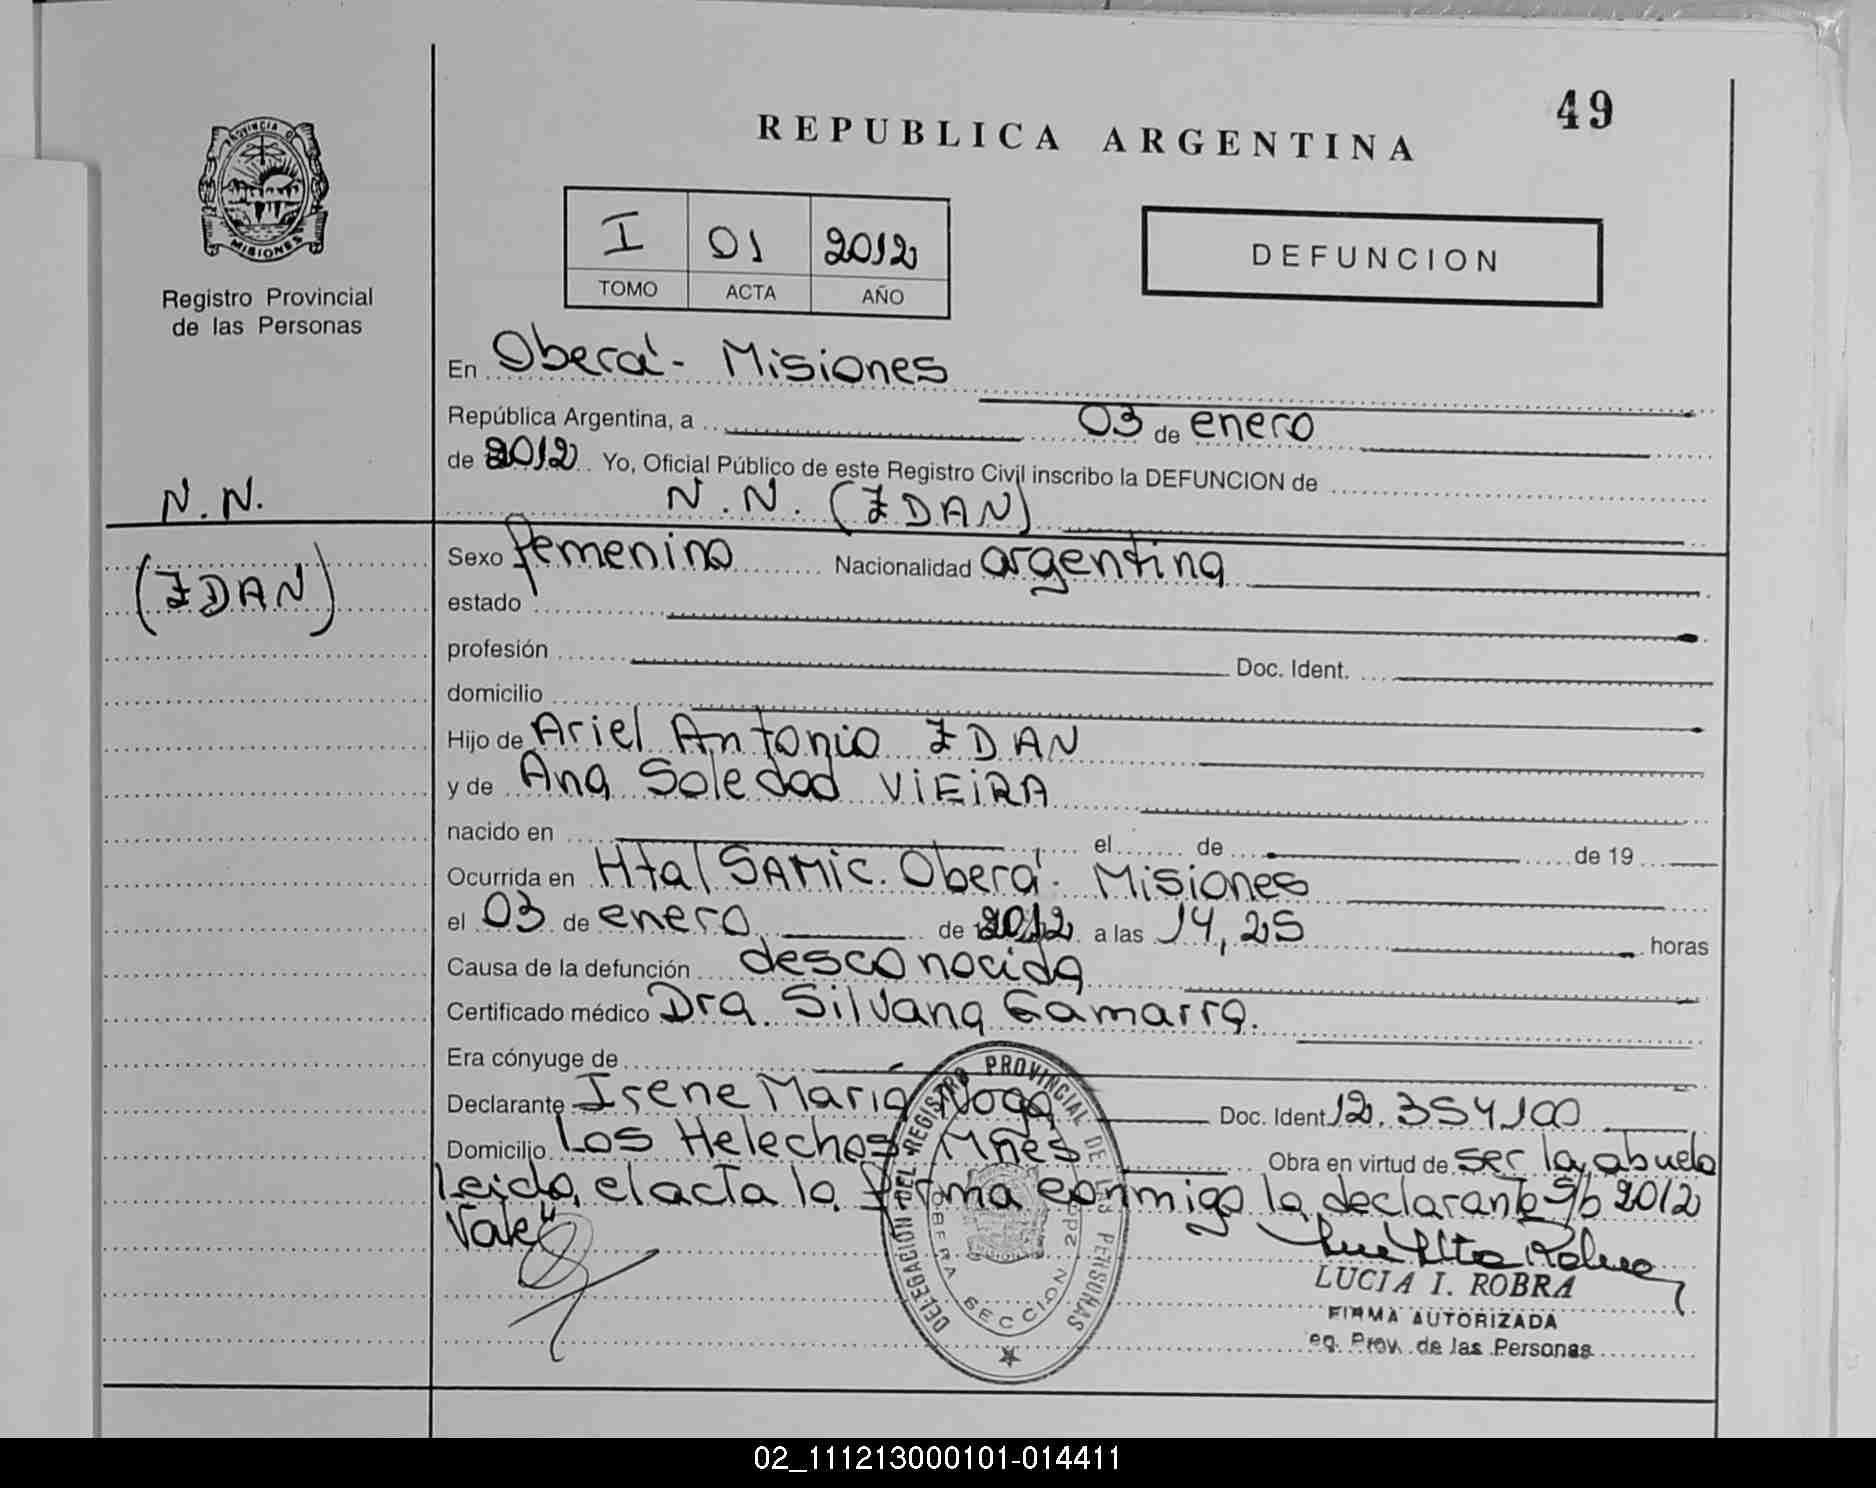 49
REPUBLICA ARGENTINA
PROVINCIA D
MISIONES
Registro Provincial
de las Personas
I 01 2012
TOMO ACTA AÑO
DEFUNCION
En Oberá - Misiones
República Argentina, a 03 de enero
de 2012 Yo, Oficial Público de este Registro Civil inscribo la DEFUNCION de
N.N. (ZDAN)
N.N.
(ZDAN)
Sexo femenino Nacionalidad argentina
estado
profesión Doc. Ident.
domicilio
Hijo de Ariel Antonio ZDAN
y de Ana Soledad VIEIRA
nacido en el de de 19
Ocurrida en Htal SAMIC. Oberá. Misiones
el 03 de enero de 2012 a las 14,25 horas
Causa de la defunción desconocida
Certificado médico Dra. Silvana Gamarra.
Era cónyuge de
Declarante Irene María Noga Doc. Ident 12.354.100
Domicilio Los Helechos Mnes Obra en virtud de ser la abuela
Leida el acta la firma conmigo la declarante S/b 2012
Vale"
DELEGACION DEL REGISTRO PROVINCIAL DE LAS PERSONAS
OBERA SECCION 2da
LUCIA I. ROBRA
FIRMA AUTORIZADA
eg. Prov. de las Personas
02_111213000101-014411